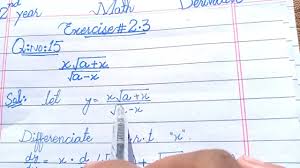 2nd year Math Derivative
Exercise # 2.3
Q:No:15
x√a+x
√a-x
Sol: let y = x√a+x
√a-x
Differenciate w.r.t "x"
dy = x. d